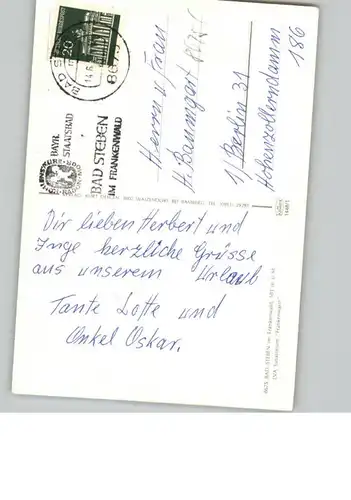 20
BAD S
8675
14.6
BAYR.
STAATSBAD
BAD STEBEN
IM FRANKENWALD
Herrn u. Frau
H. Baumgart
1/Berlin 31
Hohenzollerndamm
186
Dir lieben Herbert und
Inge herzliche Grüsse
aus unserem Urlaub
Tante Lotte und
Onkel Oskar.
8675 BAD STEBEN im Frankenwald